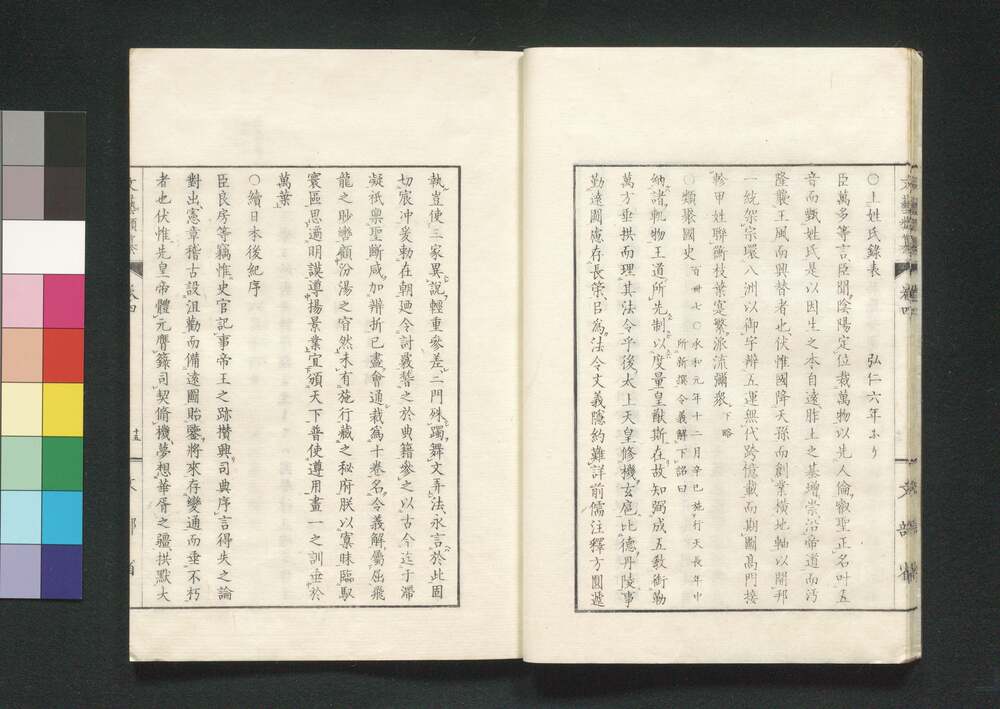 〇上姓氏錄表 弘仁六年ニあり
臣萬多等言臣聞陰陽定位裁萬物以先人倫叡聖正名叶五
音而甄姓氏是以因生之本自遠胙土之基增崇沿帝道而汚
隆襲王風而興替者也伏惟國降天孫而創業橫地軸以開邦
一統架宗環八洲以御宇辨五運無代跨億載而期斷高門接
軫甲姓聯斷枝葉寔繁派流彌衆 下略
〇類聚國史 百卅七〇承和元年十二月辛巳施行天長年中
所新撰令義解下詔曰
納諸軌物王道所先制以度量皇猷斯在故知弼成五敎銜勒
萬方垂拱而理其法令乎後太上天皇修機玄扈比德丹陵事
勤遠圖慮存長策以爲法令文義隱約難詳前儒注釋方圓遞
執豈使三家異說輕重參差二門殊躅舞文弄法永言於此固
切宸冲爰勅在朝廼令討覈讐之於典籍參之以古今迄于滯
凝祗稟聖斷咸加辨折已盡會通裁爲十卷名令義解屬屈飛
龍之眇巒顧汾湯之窅然未有施行藏之秘府朕以寡昧臨馭
寰區思遹明謨導揚景業宜頒天下普使遵用畫一之訓垂於
萬葉
〇續日本後紀序
臣良房等竊惟史官記事帝王之跡攅興司典序言得失之論
對出憲章稽古設沮勸而備遠圖貽鑒將來存變通而垂不朽
者也伏惟先皇帝體元膺籙司契脩機夢想華胥之疆拱默大
文藝類纂 卷四
十五
文部省